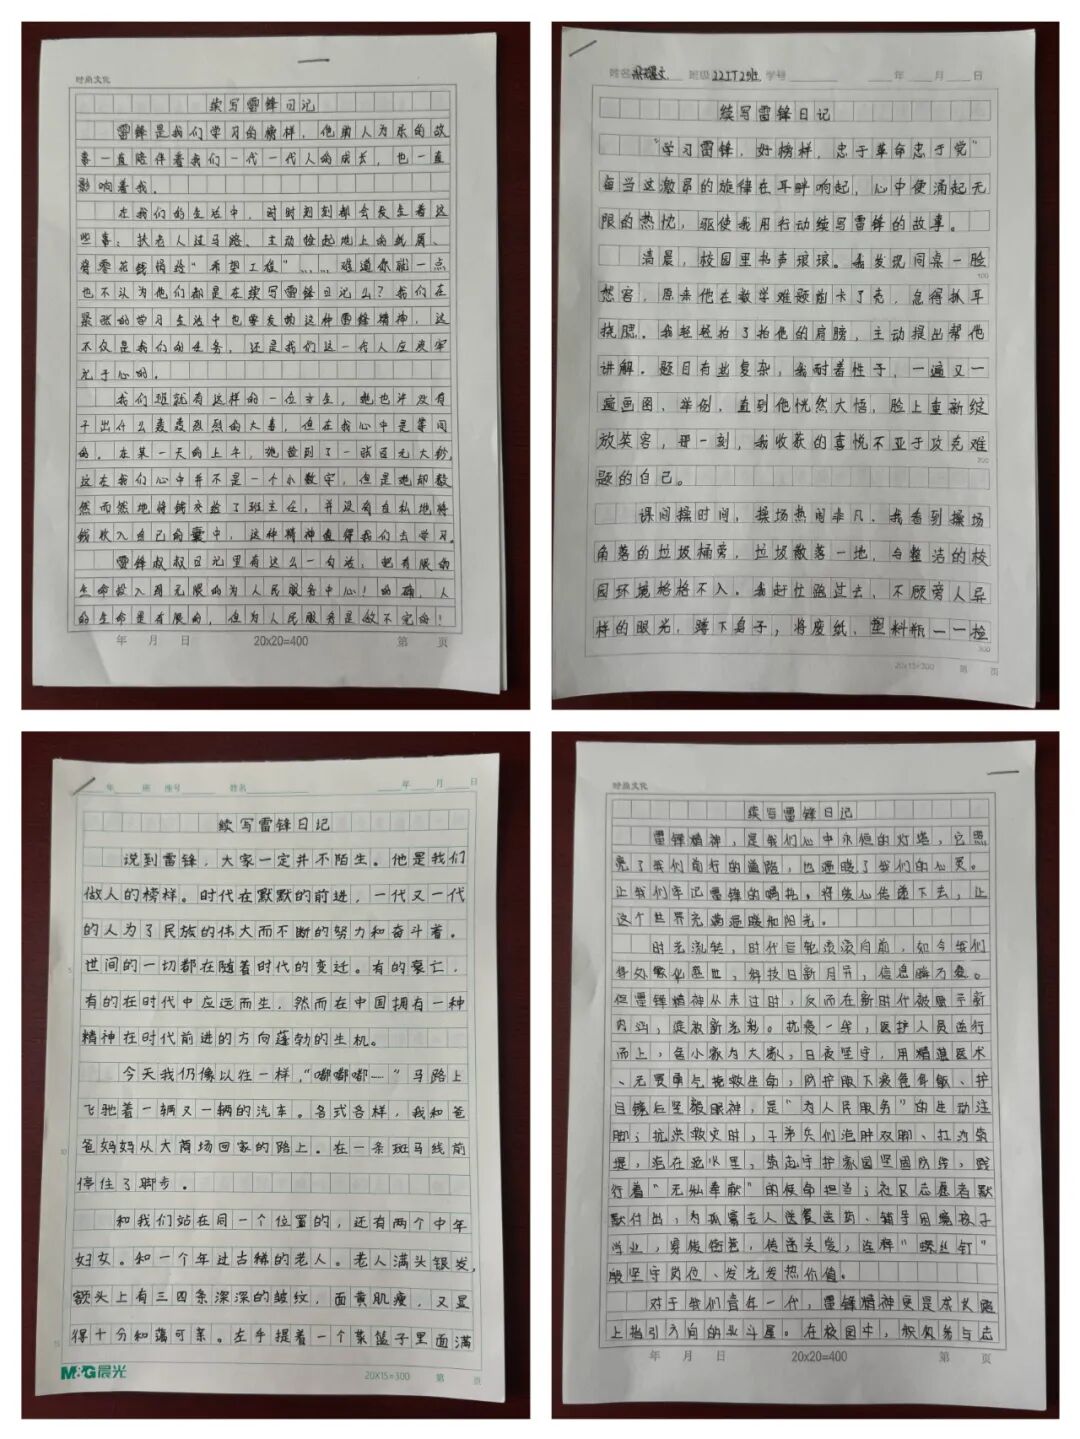 时尚文化
续写雷锋日记
雷锋是我们学习的榜样，他助人为乐的故
事一直陪伴着我们一代一代人的成长，也一直
影响着我。
在我们的生活中，时时刻刻都会发生着这
些事：扶老人过马路、主动捡起地上的纸屑、
将零花钱捐给“希望工程”……难道你能一点
也不认为他们都是在续写雷锋日记么？我们在
紧张的学习生活中也要发扬这种雷锋精神，这
不仅是我们的任务，还是我们这一代人应该牢
记于心的。
我们班就有这样的一位女生，她也许没有
干出什么轰轰烈烈的大事，但在我心中是等同
的。在某一天的上午，她捡到了一张百元大钞，
这在我们心中并不是一个小数字，但是她却毅
然而然地将钱交给了班主任，并没有自私地将
钱收入自己的囊中，这种精神值得我们去学习。
雷锋叔叔日记里有这么一句话，把有限的
生命投入到无限的为人民服务中心！的确，人
的生命是有限的，但为人民服务是做不完的！
年 月 日 20x20=400 第 页
姓名 班级 22IT2班 学号 年 月 日
续写雷锋日记
“学习雷锋，好榜样，忠于革命忠于党”
每当这激昂的旋律在耳畔响起，心中便涌起无
限的热忱，驱使我用行动续写雷锋的故事。
清晨，校园里书声琅琅。我发现同桌一脸
100
愁容，原来他在数学难题前卡了壳，急得抓耳
挠腮。我轻轻拍了拍他的肩膀，主动提出帮他
讲解。题目有些复杂，我耐着性子，一遍又一
遍画图、举例，直到他恍然大悟，脸上重新绽
放笑容，那一刻，我收获的喜悦不亚于攻克难
200
题的自己。
课间操时间，操场热闹非凡，我看到操场
角落的垃圾桶旁，垃圾散落一地，与整洁的校
园环境格格不入。我赶忙跑过去，不顾旁人异
样的眼光，蹲下身子，将废纸、塑料瓶一一捡
300
20x15=300 第 页
年 班 座号 姓名 年 月 日
续写雷锋日记
说到雷锋，大家一定并不陌生。他是我们
做人的榜样。时代在默默的前进，一代又一代
的人为了民族的伟大而不断的努力和奋斗着。
世间的一切都在随着时代的变迁。有的衰亡，
5
有的在时代中应运而生，然而在中国拥有一种
精神在时代前进的方向蓬勃的生机。
今天我仍像以往一样，“嘟嘟嘟……”马路上
飞驰着一辆又一辆的汽车。各式各样，我和爸
爸妈妈从大商场回家的路上。在一条斑马线前
10
停住了脚步。
和我们站在同一个位置的，还有两个中年
妇女。和一个年过古稀的老人。老人满头银发，
额头上有三四条深深的皱纹，面黄肌瘦，又显
得十分和蔼可亲。左手提着一个菜篮子里面满
15
M&G晨光 20X15=300 第 页
时尚文化
续写雷锋日记
雷锋精神，是我们心中永恒的灯塔，它照
亮了我们前行的道路，也温暖了我们的心灵。
让我们牢记雷锋的嘱托，将爱心传递下去，让
这个世界充满温暖和阳光。
时光流转，时代巨轮滚滚向前，如今我们
身处繁华盛世，科技日新月异，信息瞬万变。
但雷锋精神从未过时，反而在新时代被赋予新
内涵，绽放新光彩。抗疫一线，医护人员逆行
而上，舍小家为大家，日夜坚守，用精湛医术
、无畏勇气挽救生命，防护服下疲惫身躯、护
目镜后坚毅眼神，是“为人民服务”的生动注
脚；抗洪救灾时，子弟兵们泡肿双脚、扛沙筑
堤，泡在泥水里，筑起守护家园坚固防线，践
行着“无私奉献”的使命担当；社区志愿者默
默付出，为孤寡老人送餐送药、辅导困境孩子
学业，穿梭街巷，传递关爱，诠释“螺丝钉”
般坚守岗位、发光发热价值。
对于我们青年一代，雷锋精神更是成长路
上指引方向的北斗星。在校园中，积极参与志
年 月 日 20x20=400 第 页